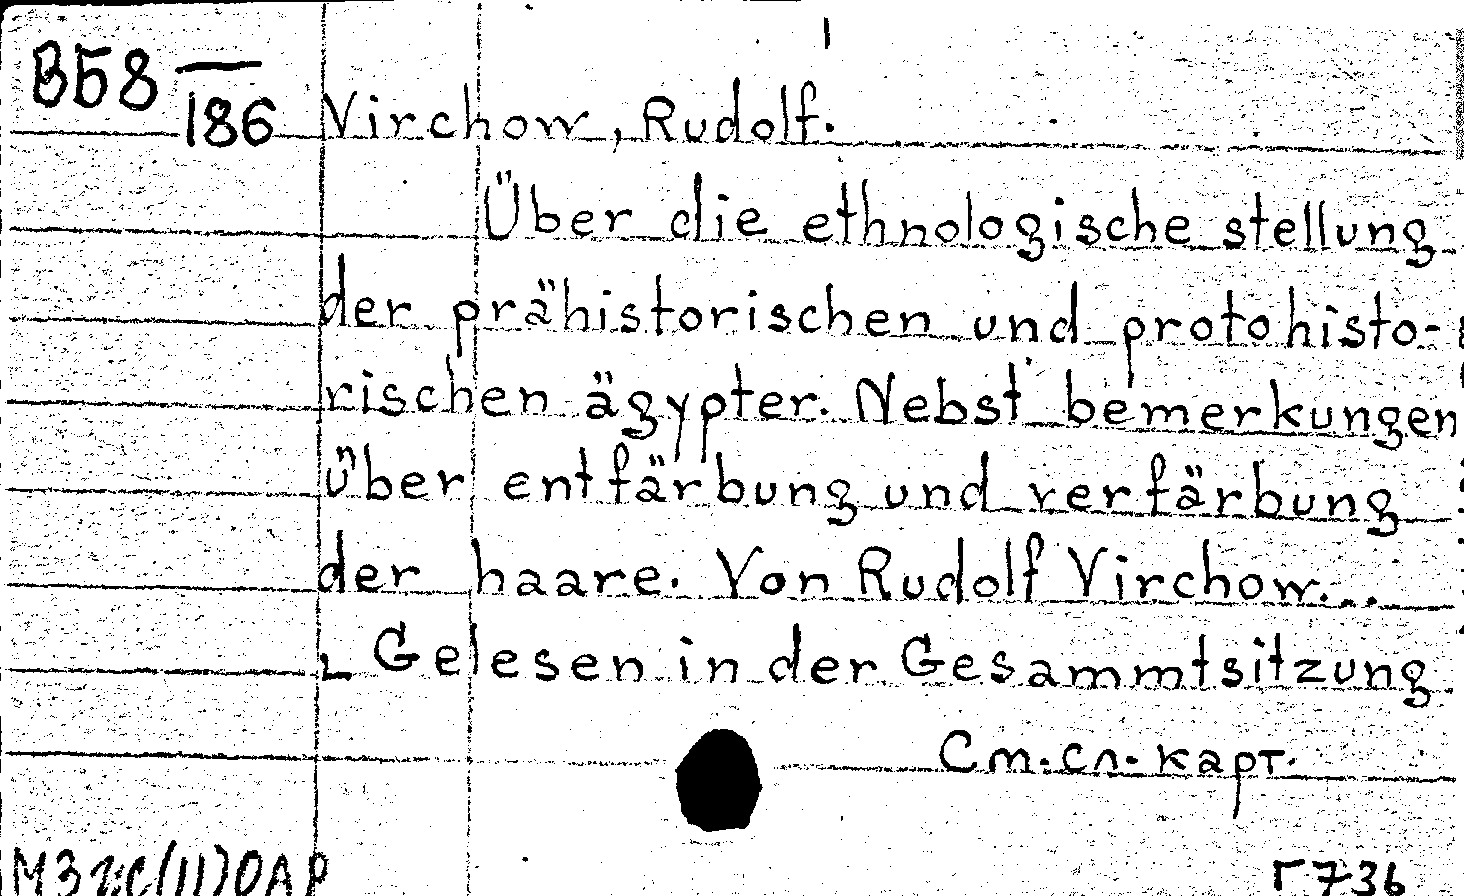 ВБ8 —
186 Virchow, Rudolf.
Über die ethnologische stellung
der prähistorischen und protohisto-
rischen ägypter. Nebst bemerkungen
über entfärbung und verfärbung
der haare. Von Rudolf Virchow...
Gelesen in der Gesammtsitzung
См. сл. карт.
Г736